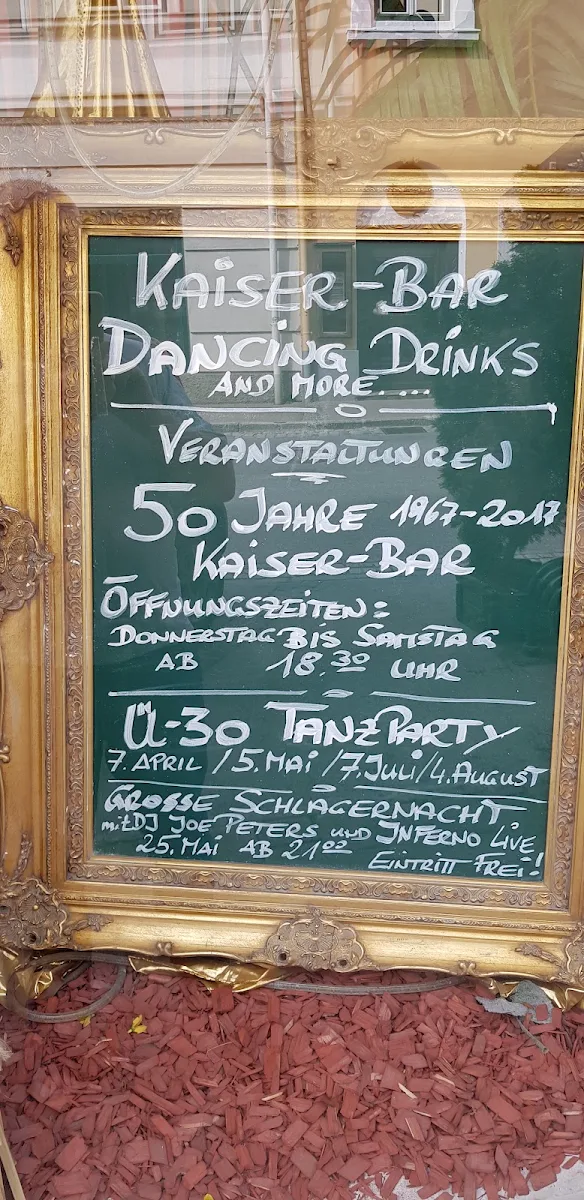 KAISER-BAR
DANCING DRINKS
AND MORE....
VERANSTALTUNGEN
50 JAHRE 1967-2017
KAISER-BAR
ÖFFNUNGSZEITEN:
DONNERSTAG BIS SAMSTAG
AB 18.30 UHR
Ü-30 TANZPARTY
7. APRIL / 5. MAI / 7. JULI / 4. AUGUST
GROSSE SCHLAGERNACHT
mit DJ JOE PETERS UND INFERNO LIVE
25. MAI AB 21.00
EINTRITT FREI!